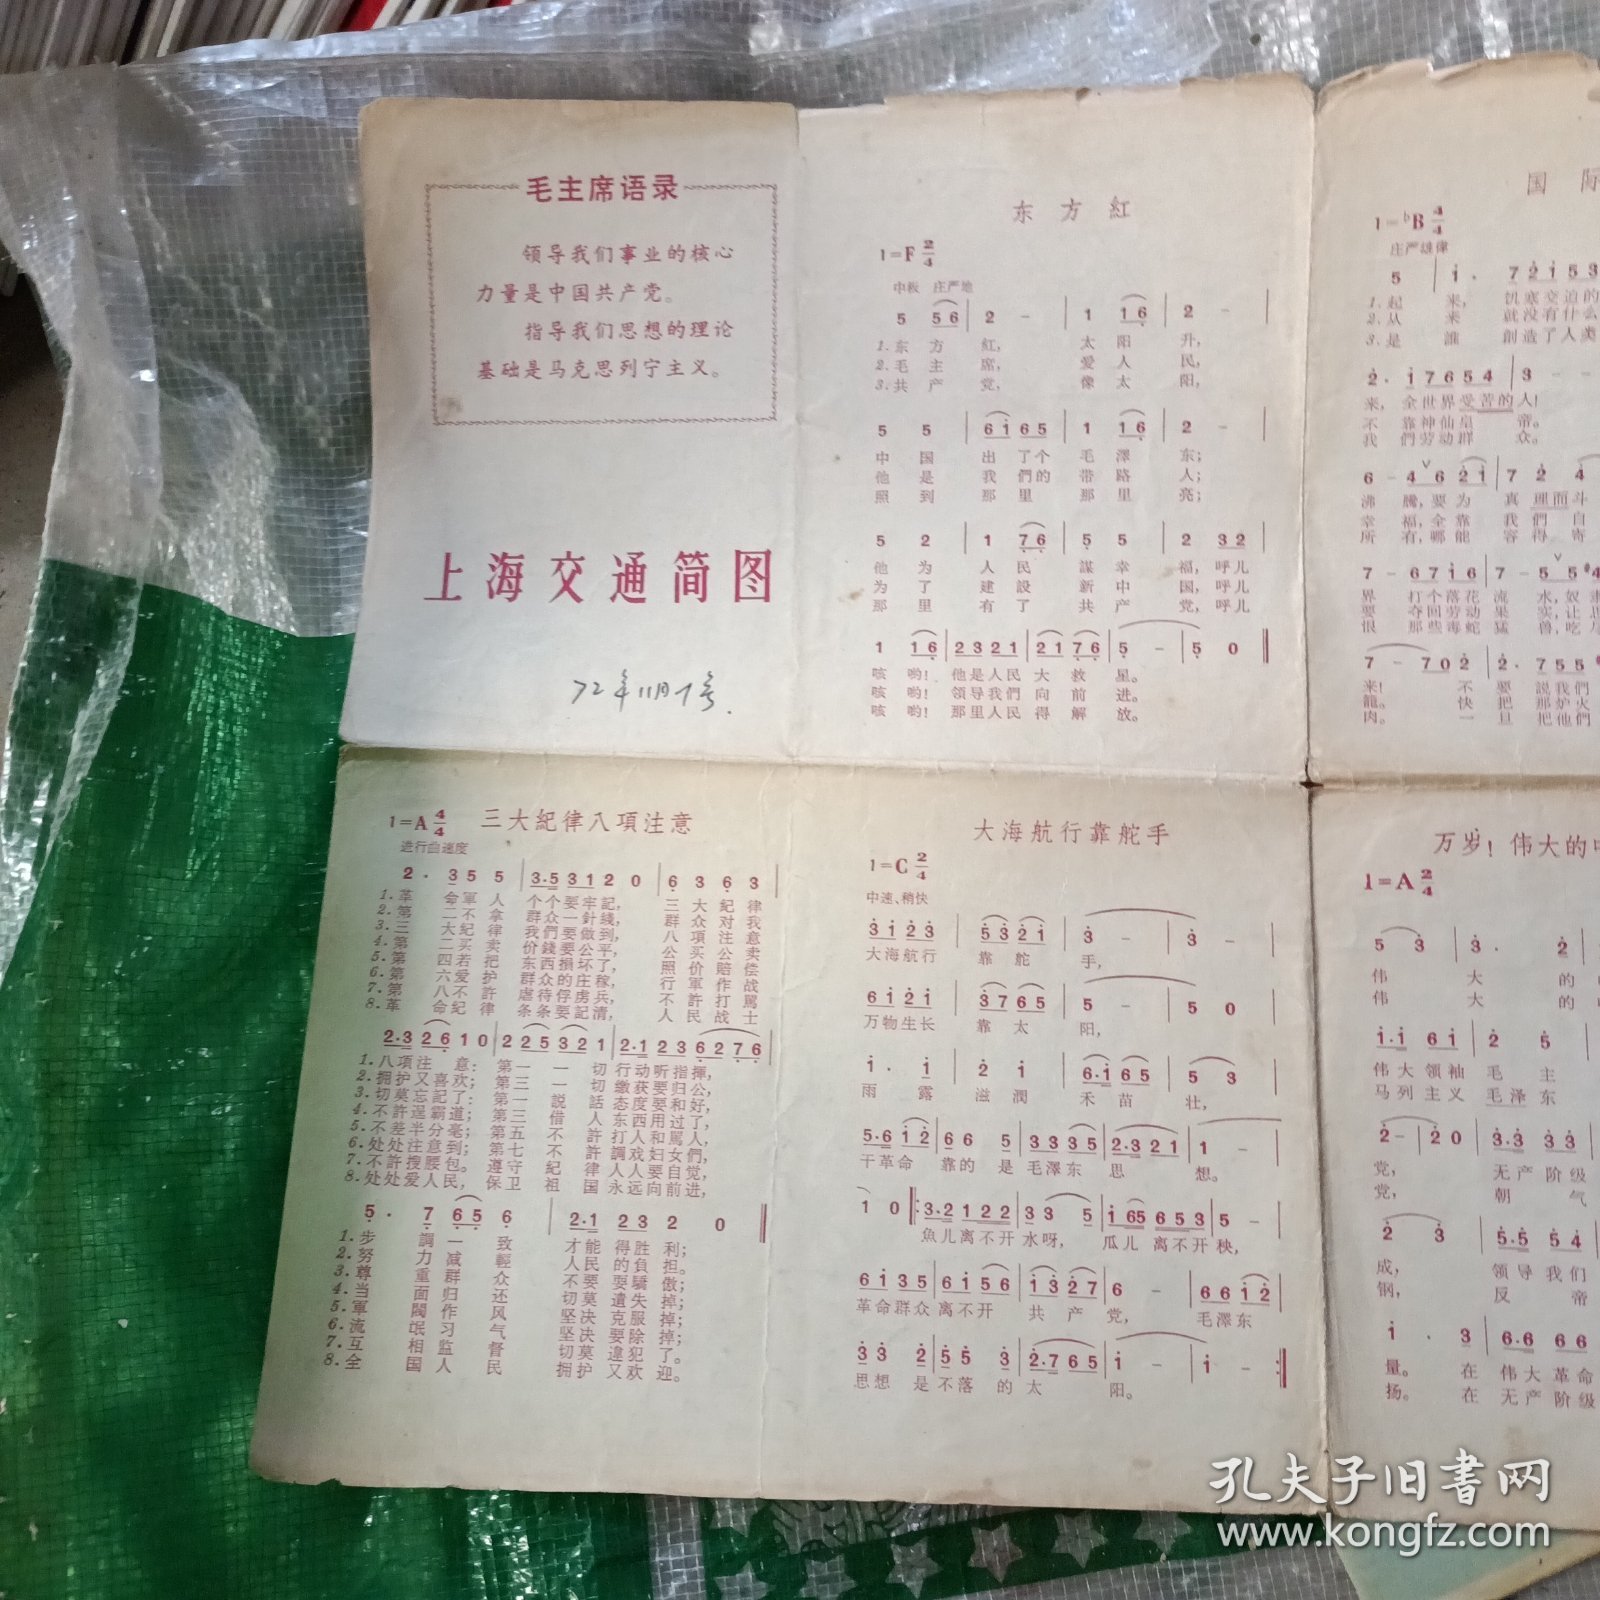 毛主席语录
领导我们事业的核心
力量是中国共产党。
指导我们思想的理论
基础是马克思列宁主义。
上海交通简图
72年11月7号.
东方紅
1=F 2/4
中板 庄严地
5 56 2 - 1 16 2 -
1.东方紅, 太阳升,
2.毛主席, 爱人民,
3.共产党, 像太阳,
5 5 6165 1 16 2 -
中国出了个毛澤东;
他是我們的带路人;
照到那里那里亮;
5 2 1 76 5 5 2 32
他为人民謀幸福, 呼儿
为了建設新中国, 呼儿
那里有了共产党, 呼儿
1 16 2321 2176 5 - 5 0
咳哟! 他是人民大救星。
咳哟! 领导我們向前进。
咳哟! 那里人民得解放。
国际
1=bB 4/4
庄严雄偉
5 1. 72153
1.起来, 饥寒交迫的
2.从来就没有什么
3.是誰創造了人类
2. 17654 3 - -
来, 全世界受苦的人!
不靠神仙皇帝。
我們劳动群众。
6 - 4 6 21 7 2 4
沸騰, 要为真理而斗
幸福, 全靠我們自
所有, 哪能容得寄
7 - 6716 7 - 5
界打个落花流水, 奴
要夺回劳动果实, 让
恨那些毒蛇猛兽, 吃
7 - 702 2. 755
来! 不要説我們
籠。快把那炉火
肉。一旦把他們
三大紀律八項注意
1=A 4/4
进行曲速度
2. 355 3.5312 0 6 3 6 3
1.革命軍人个个要牢記, 三大紀律
2.第二不拿群众一針綫, 群众对我
3.三大紀律我們要做到, 八項注意
4.第二买卖价錢要公平, 公买公卖
5.第四若把东西損坏了, 照价賠偿
6.第六爱护群众的庄稼, 行軍作战
7.第八不許虐待俘虏兵, 不許打罵
8.革命紀律条条要記清, 人民战士
2.3 26 1 0 2 25 32 1 2.1 23 62 76
1.八項注意: 第一一切行动听指揮,
2.拥护又喜欢; 第三一切缴获要归公,
3.切莫忘記了: 第一説話态度要和好,
4.不許逞霸道; 第三借人东西用过了,
5.不差半分毫; 第五不許打人和罵人,
6.处处注意到; 第七不許調戏妇女們,
7.不許搜腰包。遵守紀律人人要自觉,
8.处处爱人民, 保卫祖国永远向前进,
5. 7 65 6 2.1 23 2 0
1.步調一致才能得胜利;
2.努力减輕人民的負担。
3.尊重群众不要耍驕傲;
4.当面归还切莫遺失掉;
5.軍閥作风坚决克服掉;
6.流氓习气坚决要除掉;
7.互相监督切莫違犯了。
8.全国人民拥护又欢迎。
大海航行靠舵手
1=C 2/4
中速、稍快
3123 5321 3 - 3 -
大海航行靠舵手,
6121 3765 5 - 5 0
万物生长靠太阳,
1. 1 2 1 6.165 5 3
雨露滋潤禾苗壮,
5.612 66 5 3335 2.321 1 -
干革命靠的是毛澤东思想。
1 0 3.2122 33 5 165653 5 -
魚儿离不开水呀, 瓜儿离不开秧,
6135 6156 1327 6 - 6612
革命群众离不开共产党, 毛澤东
33 2 55 3 2.765 1 - 1 -
思想是不落的太阳。
万岁! 伟大的
1=A 2/4
5 3 3. 2
伟大的
伟大的
1.1 61 2 5
伟大领袖毛主
马列主义毛泽东
2 - 20 3.3 33
党, 无产阶级
党, 朝气
2 3 5.5 54
成, 领导我们
钢, 反帝
1. 3 6.6 66
量。在伟大革命
扬。在无产阶级
孔夫子旧書网
www.kongfz.com